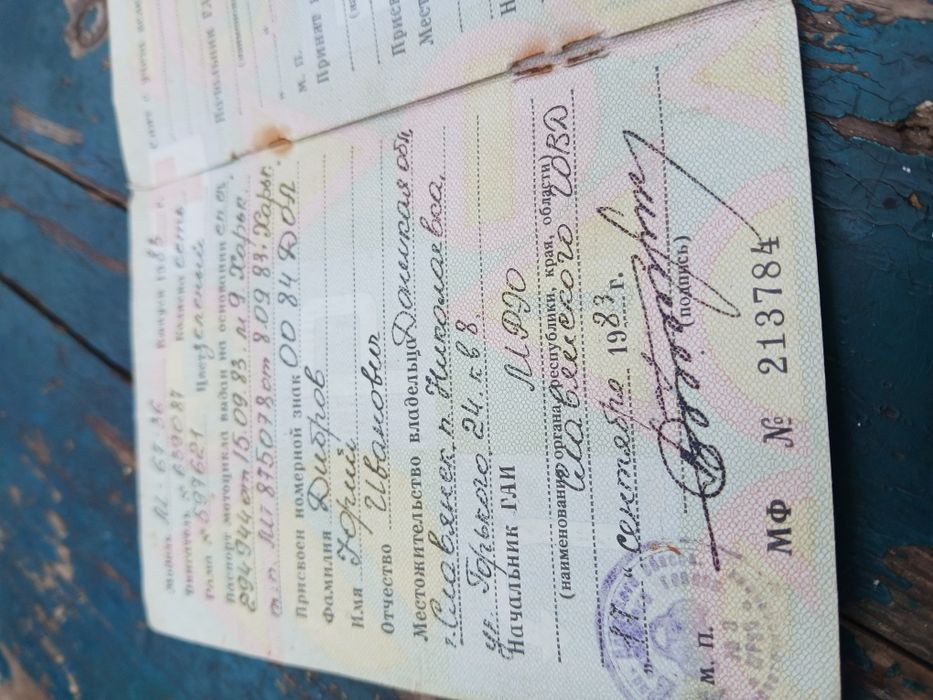 Модель М-67 36 Выпуск 1983 г.
Двигатель № 639087 Коляска есть
Рама № 597621 Цвет зеленый
Паспорт мотоцикла выдан на основании сп. сч.
294944 от 15.09.83 м 9 Харьк.
т. п. МТ 875078 от 8.09 83. Харьк.
Присвоен номерной знак 00 84 ДОП
Фамилия Дибров
Имя Юрий
Отчество Иванович
Местожительство владельца Донецкая обл
г. Славянск п. Николаевка.
ул. Горького 24 кв 8.
Начальник ГАИ МРЭО
(наименование органа республики, края, области)
Славянского ГОВД
"17" сентября 1983 г.
(подпись)
М. П.
МФ № 2137784